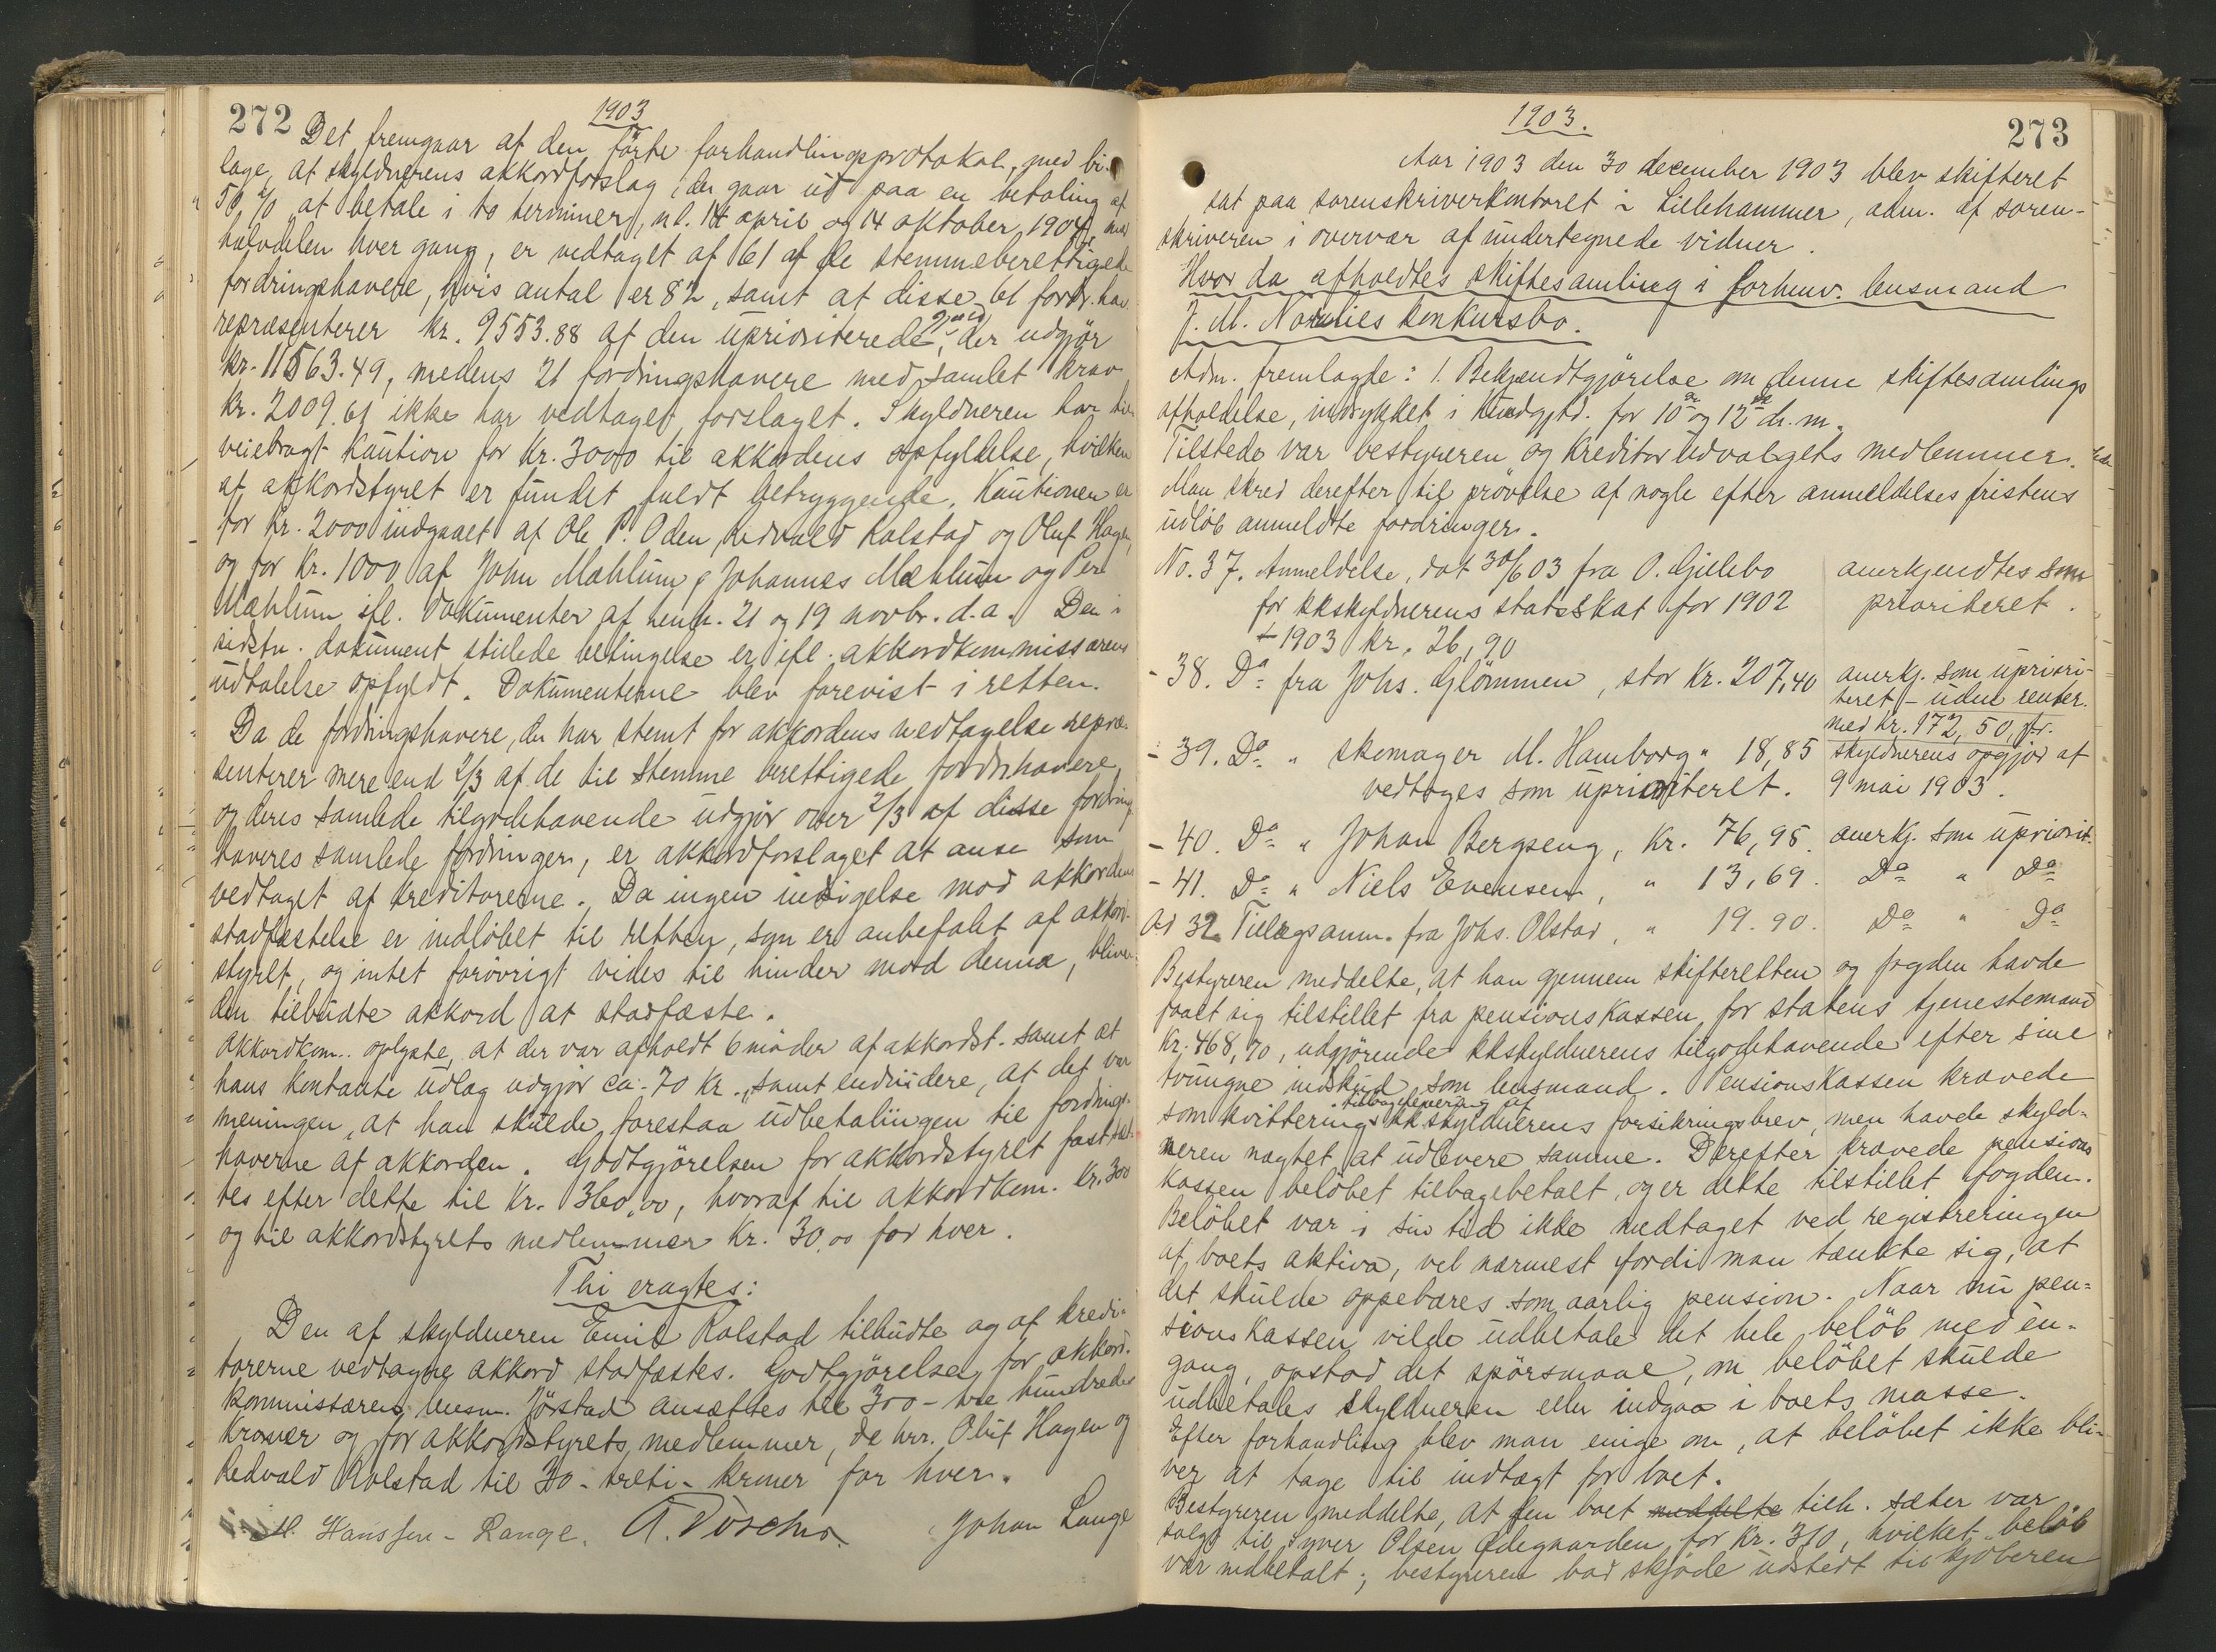 272
1903
Det fremgaar af den førte forhandlingsprotokol, med bi-
lage, at skyldnerens akkordforslag, der gaar ud paa en betaling af
50 % at betale i to terminer, nl. 14 april og 14 oktober 1904, med
halvdelen hver gang, er vedtaget af 61 af de stemmeberettigede
fordringshavere, hvis antal er 82, samt at disse 61 fordr.hav.
repræsenterer kr. 9553.88 af den uprioriterede gjæld, der udgjør
kr. 11563.49, medens 21 fordringshavere med samlet krav
kr. 2009.61 ikke har vedtaget forslaget. Skyldneren har til-
veiebragt kaution for kr. 3000 til akkordens opfyldelse, hvilken
af akkordstyret er fundet fuldt betryggende. Kautionen er
for kr. 2000 indgaaet af Ole P. Oden, Redvald Kolstad og Oluf Hagen,
og for kr. 1000 af John Mæhlum, Johannes Mæhlum og Per
Mæhlum ifl. dokumenter af henh. 21 og 19 novbr. d.a. Den i
sidstn. dokument stillede betingelse er ifl. akkordkommissærens
udtalelse opfyldt. Dokumenterne blev forevist i retten.
Da de fordringshavere, der har stemt for akkordens vedtagelse repræ-
senterer mere end 2/3 af de til stemme berettigede fordr.havere
og deres samlede tilgodehavende udgjør over 2/3 af disse fordrings-
haveres samlede fordringer, er akkordforslaget at anse som
vedtaget af kreditorerne. Da ingen indsigelse mod akkordens
stadfæstelse er indløbet til retten, som er anbefalet af akkord-
styret, og intet forøvrigt vides til hinder mod denne, bliver
den tilbudte akkord at stadfæste.
Akkordkom. oplyste, at der var afholdt 6 møder af akkordst. samt at
hans kontante udlæg udgjør ca. 70 kr., samt endvidere, at det var
meningen, at han skulde forestaa udbetalingen til fordrings-
haverne af akkorden. Godtgjørelsen for akkordstyret fastsat-
tes efter dette til kr. 360,00, hvoraf til akkordkom. kr. 300
og til akkordstyrets medlemmer kr. 30.00 for hver.
Thi eragtes:
Den af skyldneren Emil Kolstad tilbudte og af kredi-
torerne vedtagne akkord stadfæstes. Godtgjørelsen for akkord-
kommissæren lensm. Jørstad ansættes til 300 - tre hundrede
kroner og for akkordstyrets medlemmer, de hrr. Oluf Hagen og
Redvald Kolstad til 30 - treti - kroner for hver.
M. Hanssen-Lange. Johan Lange
1903.
273
Aar 1903 den 30 december 1903 blev skifteret
sat paa sorenskriverkontoret i Lillehammer, adm. af soren-
skriveren i overvær af undertegnede vidner.
Hvor da afholdtes skiftesamling i forhenv. lensmand
J. M. Nordlies konkursbo.
Adm. fremlagde: 1. Bekjendtgjørelse om denne skiftesamlings
afholdelse, indrykket i Kundgjtd. for 10de og 12te ds. m.
Tilstede var bestyreren og kreditorudvalgets medlemmer.
Man skred derefter til prøvelse af nogle efter anmeldelsesfristens
udløb anmeldte fordringer.
No. 37. Anmeldelse, dat 30/6 03 fra O. Gillebo anerkjendtes som
for kkskyldnerens statsskat for 1902 prioriteret.
+ 1903 kr. 26,90
- 38. Do fra Johs. Glømmen, stor kr. 207,40 anerkj. som upriori-
teret - uden renter.
med kr. 172,50, jfr.
- 39. Do " skomager M. Hamborg " 18,85 skyldnerens opgjør af
vedtoges som uprioriteret. 9 mai 1903.
- 40. Do " Johan Bergseng, kr. 76,95. anerkj. som upriorit.
- 41. Do " Niels Evensen, " 13,69. Do " Do
Ad 32 Tillægsanm. fra Johs. Olstad, " 19.90. Do " Do
Bestyreren meddelte, at han gjennem skifteretten og fogden havde
faaet sig tilstillet fra pensionskassen for statens tjenestemænd
kr. 468,70, udgjørende kkskyldnerens tilgodehavende efter sine
tvungne indskud som lensmand. Pensionskassen krævede
tilbagelevering af
som kvittering kkskyldnerens forsikringsbrev, men havde skyld-
neren nægtet at udlevere samme. Derefter krævede pensions
kassen beløbet tilbagebetalt, og er dette tilstillet fogden.
Beløbet var i sin tid ikke medtaget ved registreringen
af boets aktiva, vel nærmest fordi man tænkte sig, at
det skulde oppebæres som aarlig pension. Naar nu pen-
sionskassen vilde udbetale det hele beløb med én-
gang, opstod det spørsmaal, om beløbet skulde
udbetales skyldneren eller indgaa i boets masse.
Efter forhandling blev man enige om, at beløbet ikke bli-
ver at tage til indtægt for boet.
Bestyreren meddelte, at den boet meddelte tilh. sæter var
solgt til Syver Olsen Ødegaarden for kr. 310, hvilket beløb
var indbetalt; bestyreren bad skjøde udstedt til kjøberen